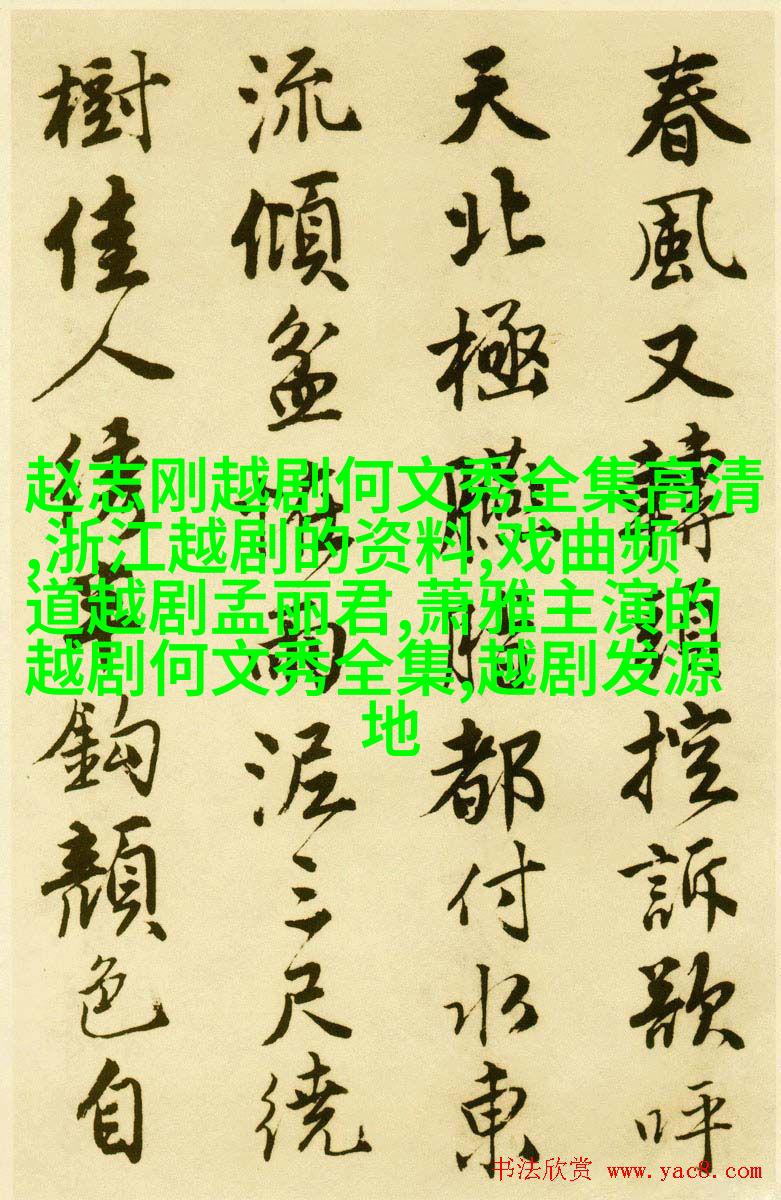 春風又轉頭控訴歌呼
天北極臙脂都付水東
流傾盆雨泥三尺繞
樹佳人鈎顏色自
赵志刚越剧何文秀全集高清
,浙江越剧的资料,戏曲频
道越剧孟丽君,萧雅主演的
越剧何文秀全集,越剧发源
地
书法欣赏 www.yac8.com